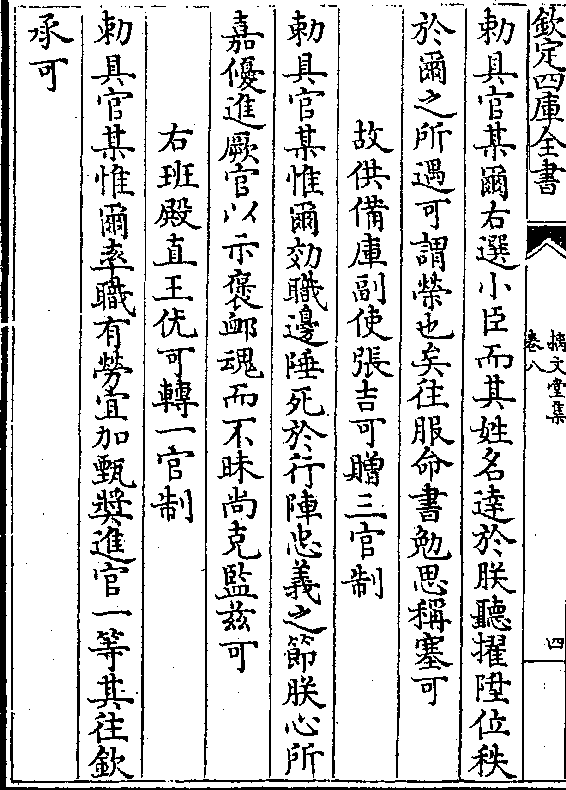 欽定四庫全書
摛文堂集
卷八
四
勅具官某爾右選小臣而其姓名達於朕聽擢陞位秩
於爾之所遇可謂榮也矣往服命書勉思稱塞可
故供備庫副使張吉可贈三官制
勅具官某惟爾効職邊陲死於行陣忠義之節朕心所
嘉優進厥官以示褒衈魂而不昧尚克監兹可
右班殿直王优可轉一官制
勅具官某惟爾率職有勞宜加甄奬進官一等其往欽
承可